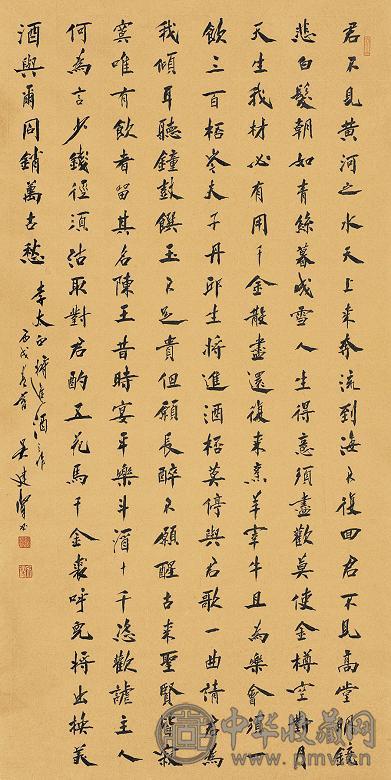 君不見黄河之水天上來奔流到海不復回君不見高堂明鏡
悲白髮朝如青絲暮成雪人生得意須盡歡莫使金樽空對月
天生我材必有用千金散盡還復来烹羊宰牛且為樂會須一
飲三百桮岑夫子丹邱生將進酒桮莫停與君歌一曲請君為
我傾耳聽鐘鼓饌玉不足貴但願長醉不願醒古来聖賢皆寂
寞唯有飲者留其名陳王昔時宴平樂斗酒十千恣歡謔主人
何為言少錢徑須沽取對君酌五花馬千金裘呼兒將出換美
酒與爾同銷萬古愁
李太白將進酒
丙戌
中华收藏网
www.pmv.cn